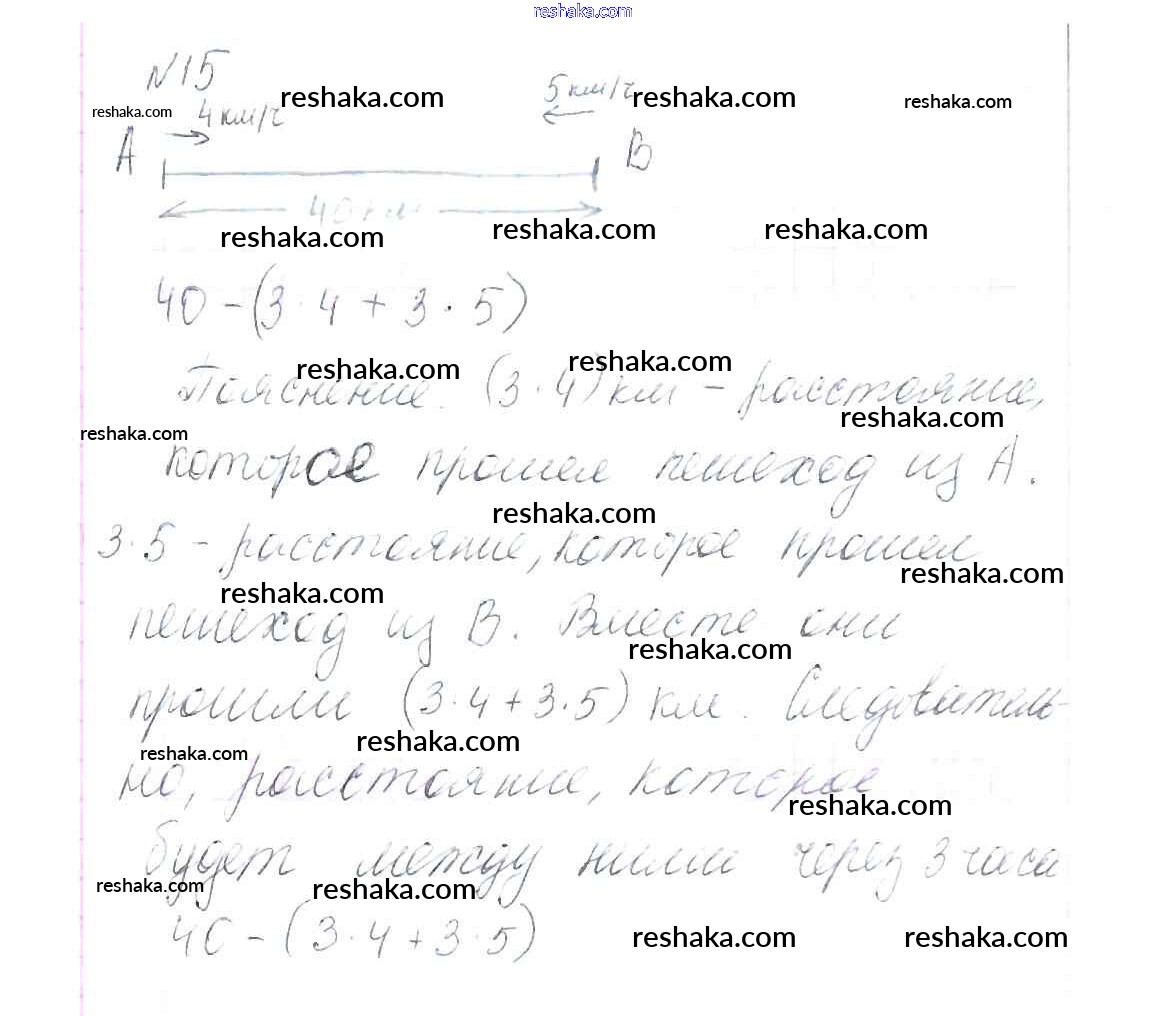 reshaka.com
№15
reshaka.com 4 км/ч reshaka.com 5 км/ч reshaka.com reshaka.com
А В
40 км
reshaka.com reshaka.com reshaka.com
40 - (3 · 4 + 3 · 5)
reshaka.com reshaka.com
Пояснение. (3 · 4) км - расстояние,
reshaka.com reshaka.com
которое прошел пешеход из А.
reshaka.com
3 · 5 - расстояние, которое прошел
reshaka.com reshaka.com
пешеход из В. Вместе они
reshaka.com
прошли (3 · 4 + 3 · 5) км. Следователь-
reshaka.com reshaka.com
но, расстояние, которое
reshaka.com
будет между ними через 3 часа
reshaka.com reshaka.com
40 - (3 · 4 + 3 · 5)
reshaka.com reshaka.com